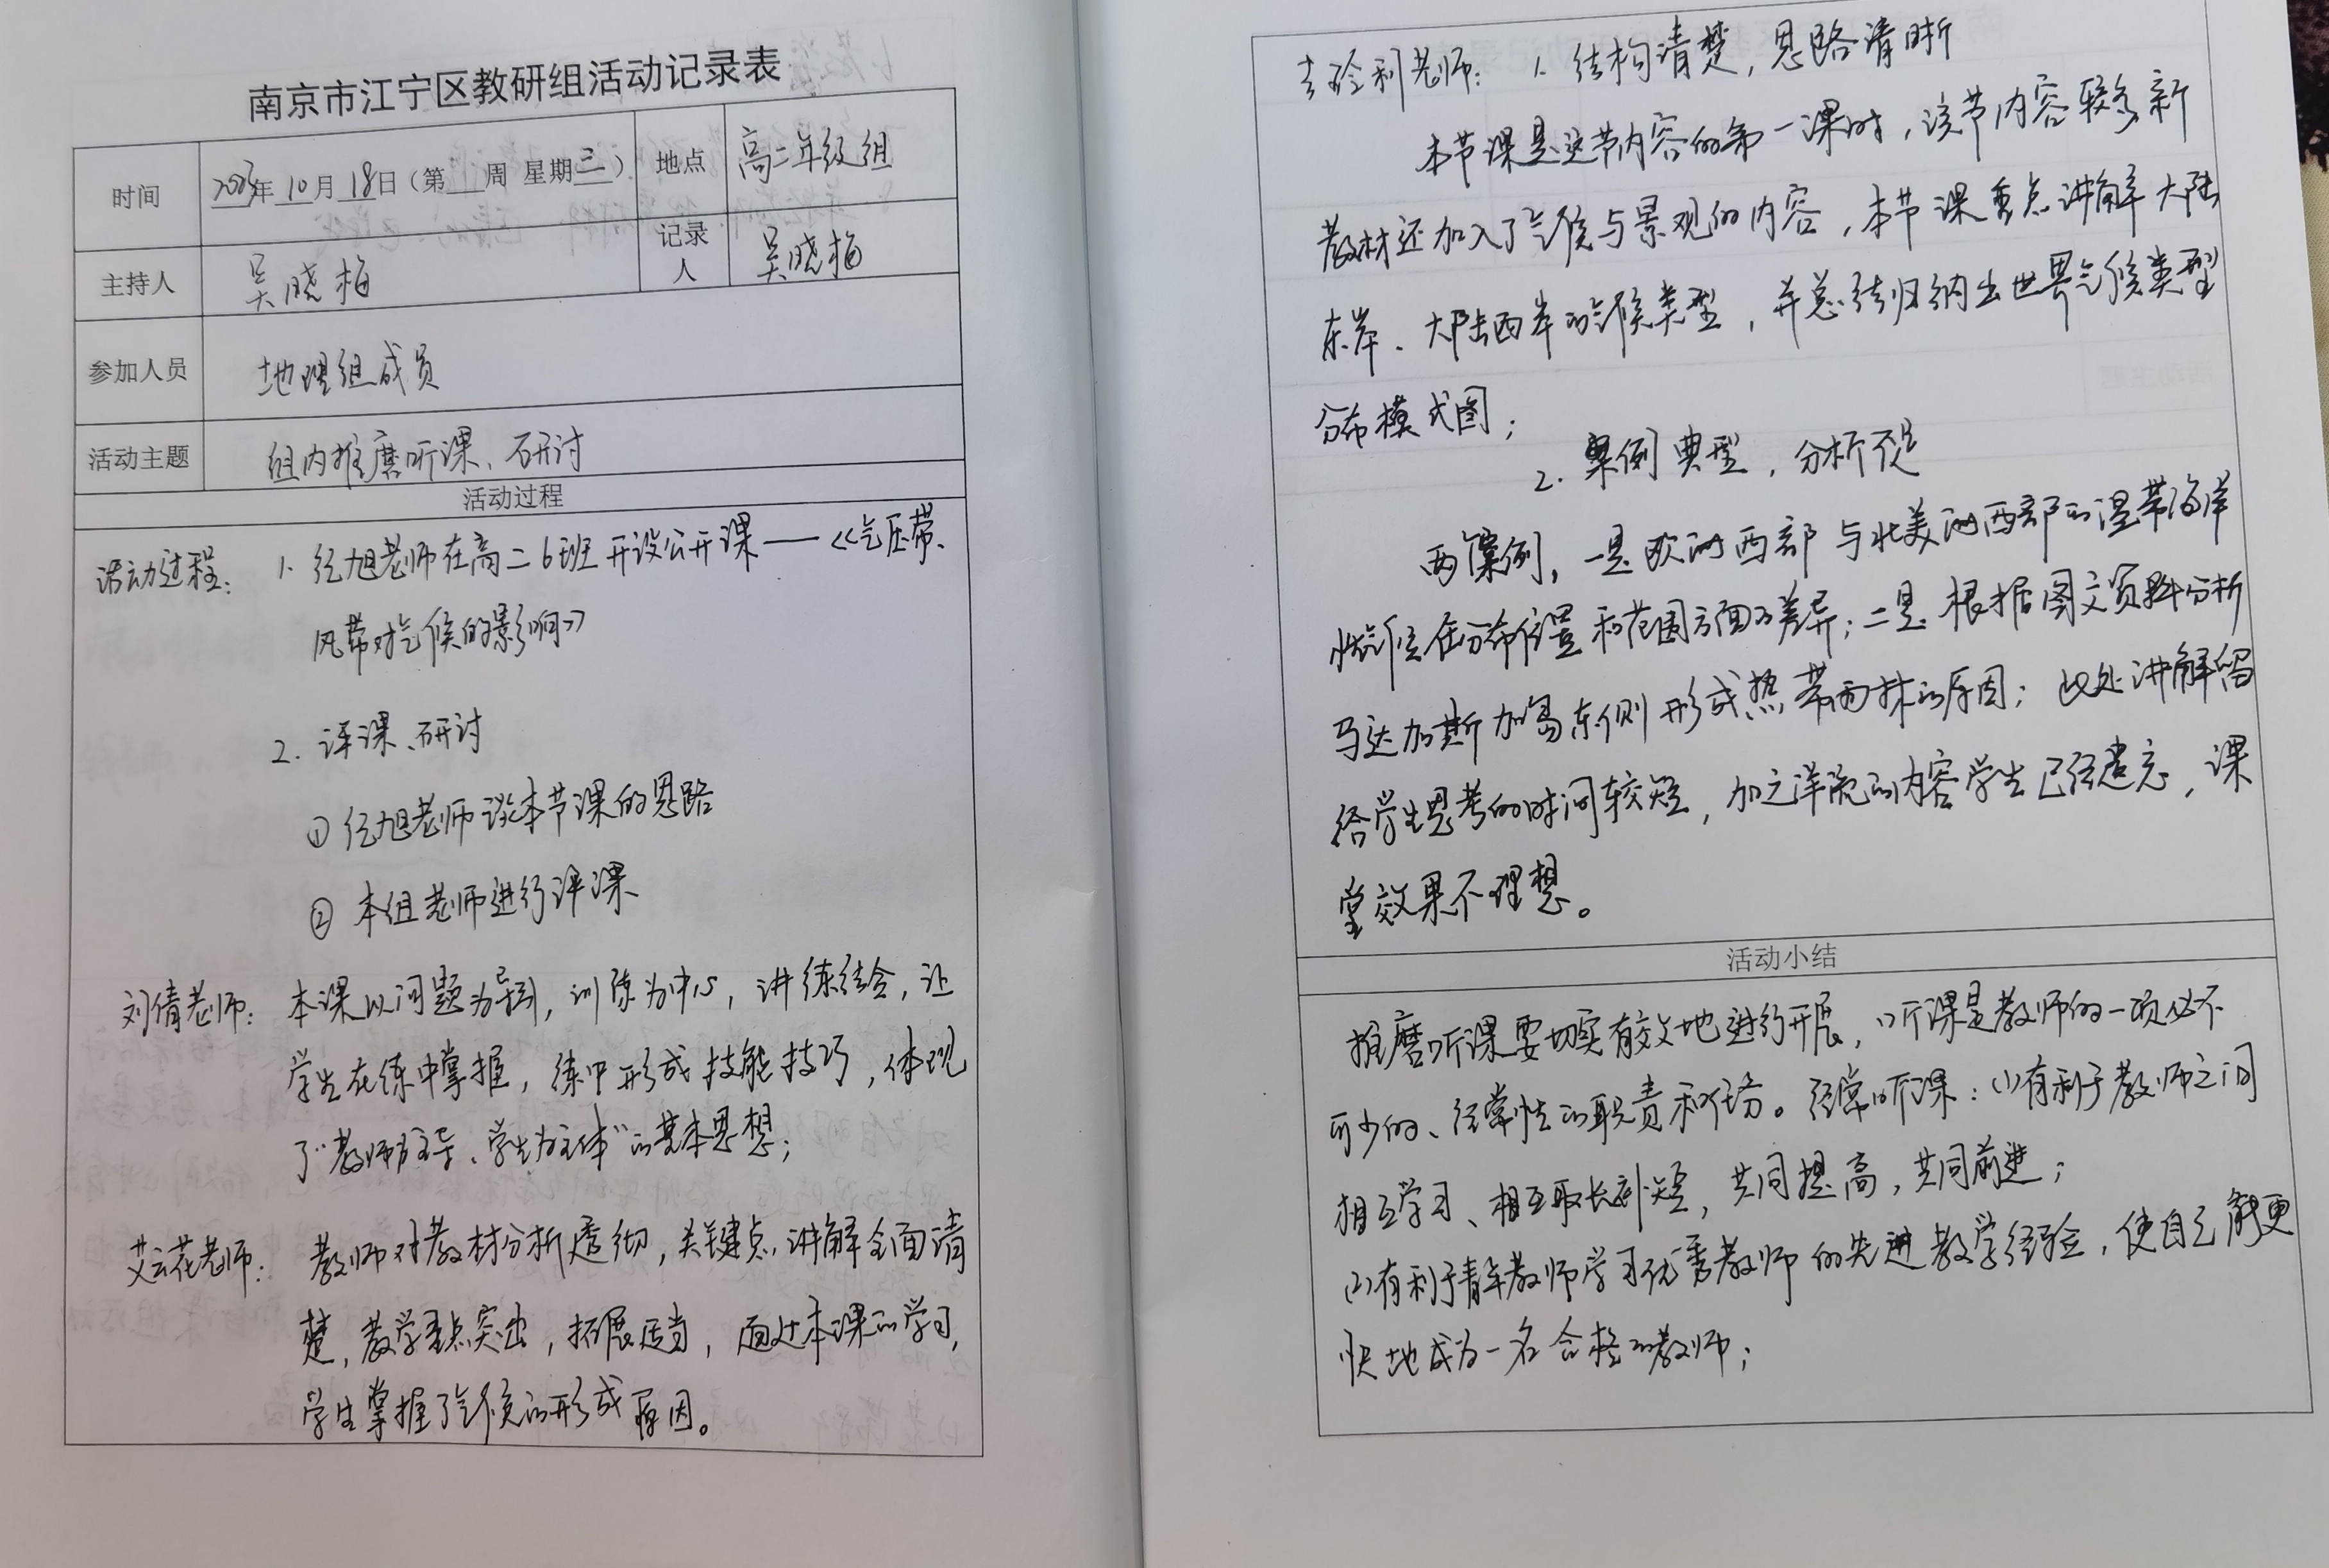 南京市江宁区教研组活动记录表
时间 2023年 10月 18日（第 周 星期三） 地点 高二年级组
主持人 吴晓梅 记录人 吴晓梅
参加人员 地理组成员
活动主题 组内推磨听课、研讨
活动过程
活动过程： 1. 旭老师在高二6班开设公开课——《气压带、
风带对气候的影响》
2. 评课、研讨
① 旭老师谈本节课的思路
② 本组老师进行评课
刘倩老师： 本课以问题为导引，训练为中心，讲练结合，让
学生在练中掌握，练中形成技能技巧，体现
了“教师为主导、学生为主体”的基本思想；
艾云花老师： 教师对教材分析透彻，关键点讲解全面清
楚，教学重点突出，拓展适当，通过本课的学习，
学生掌握了气候的形成原因。
老师： 1. 结构清楚，思路清晰
本节课是这节内容的第一课时，该节内容较多新
教材还加入了气候与景观的内容，本节课重点讲解大陆
东岸、大陆西岸的气候类型，并总结归纳出世界气候类型
分布模式图；
2. 案例典型，分析不足
两个案例，一是欧洲西部与北美洲西部的温带海洋
性气候在分布位置和范围方面的差异；二是根据图文资料分析
马达加斯加岛东侧形成热带雨林的原因；此处讲解留
给学生思考的时间较短，加之洋流的内容学生已经遗忘，课
堂效果不理想。
活动小结
推磨听课要切实有效地进行开展，听课是教师的一项必不
可少的、经常性的职责和任务。经常听课：(1)有利于教师之间
相互学习、相互取长补短，共同提高，共同前进；
(2)有利于青年教师学习优秀教师的先进教学经验，使自己能更
快地成为一名合格的教师；